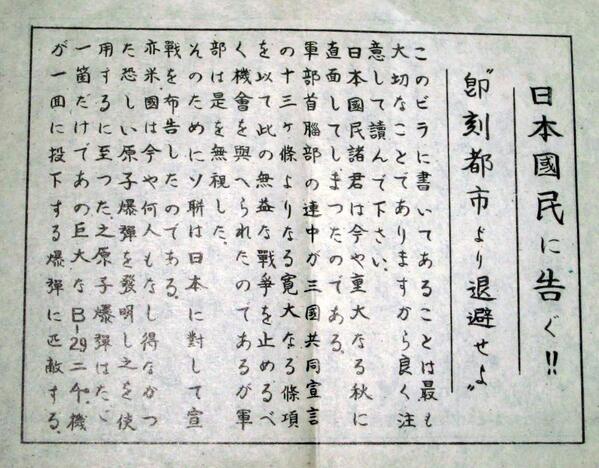 日本國民に告ぐ!!
"即刻都市より退避せよ"
このビラに書いてあることは最も
大切なことでありますから良く注
意して讀んで下さい。
日本國民諸君は今や重大なる秋に
直面してしまつたのである。
軍部首腦部の連中が三國共同宣言
の十三ヶ條よりなる寛大なる條項
を以て此の無益な戰争を止めるべ
く機會を與へられたのであるが軍
部は是を無視した。
そのためにソ聯は日本に對して宣
戰を布告したのである。
亦米國は今や何人もなし得なかつ
た恐しい原子爆彈を發明し之を使
用するに至つた之原子爆彈はたゞ
一箇だけであの巨大なB-29二千機
が一回に投下する爆彈に匹敵する。